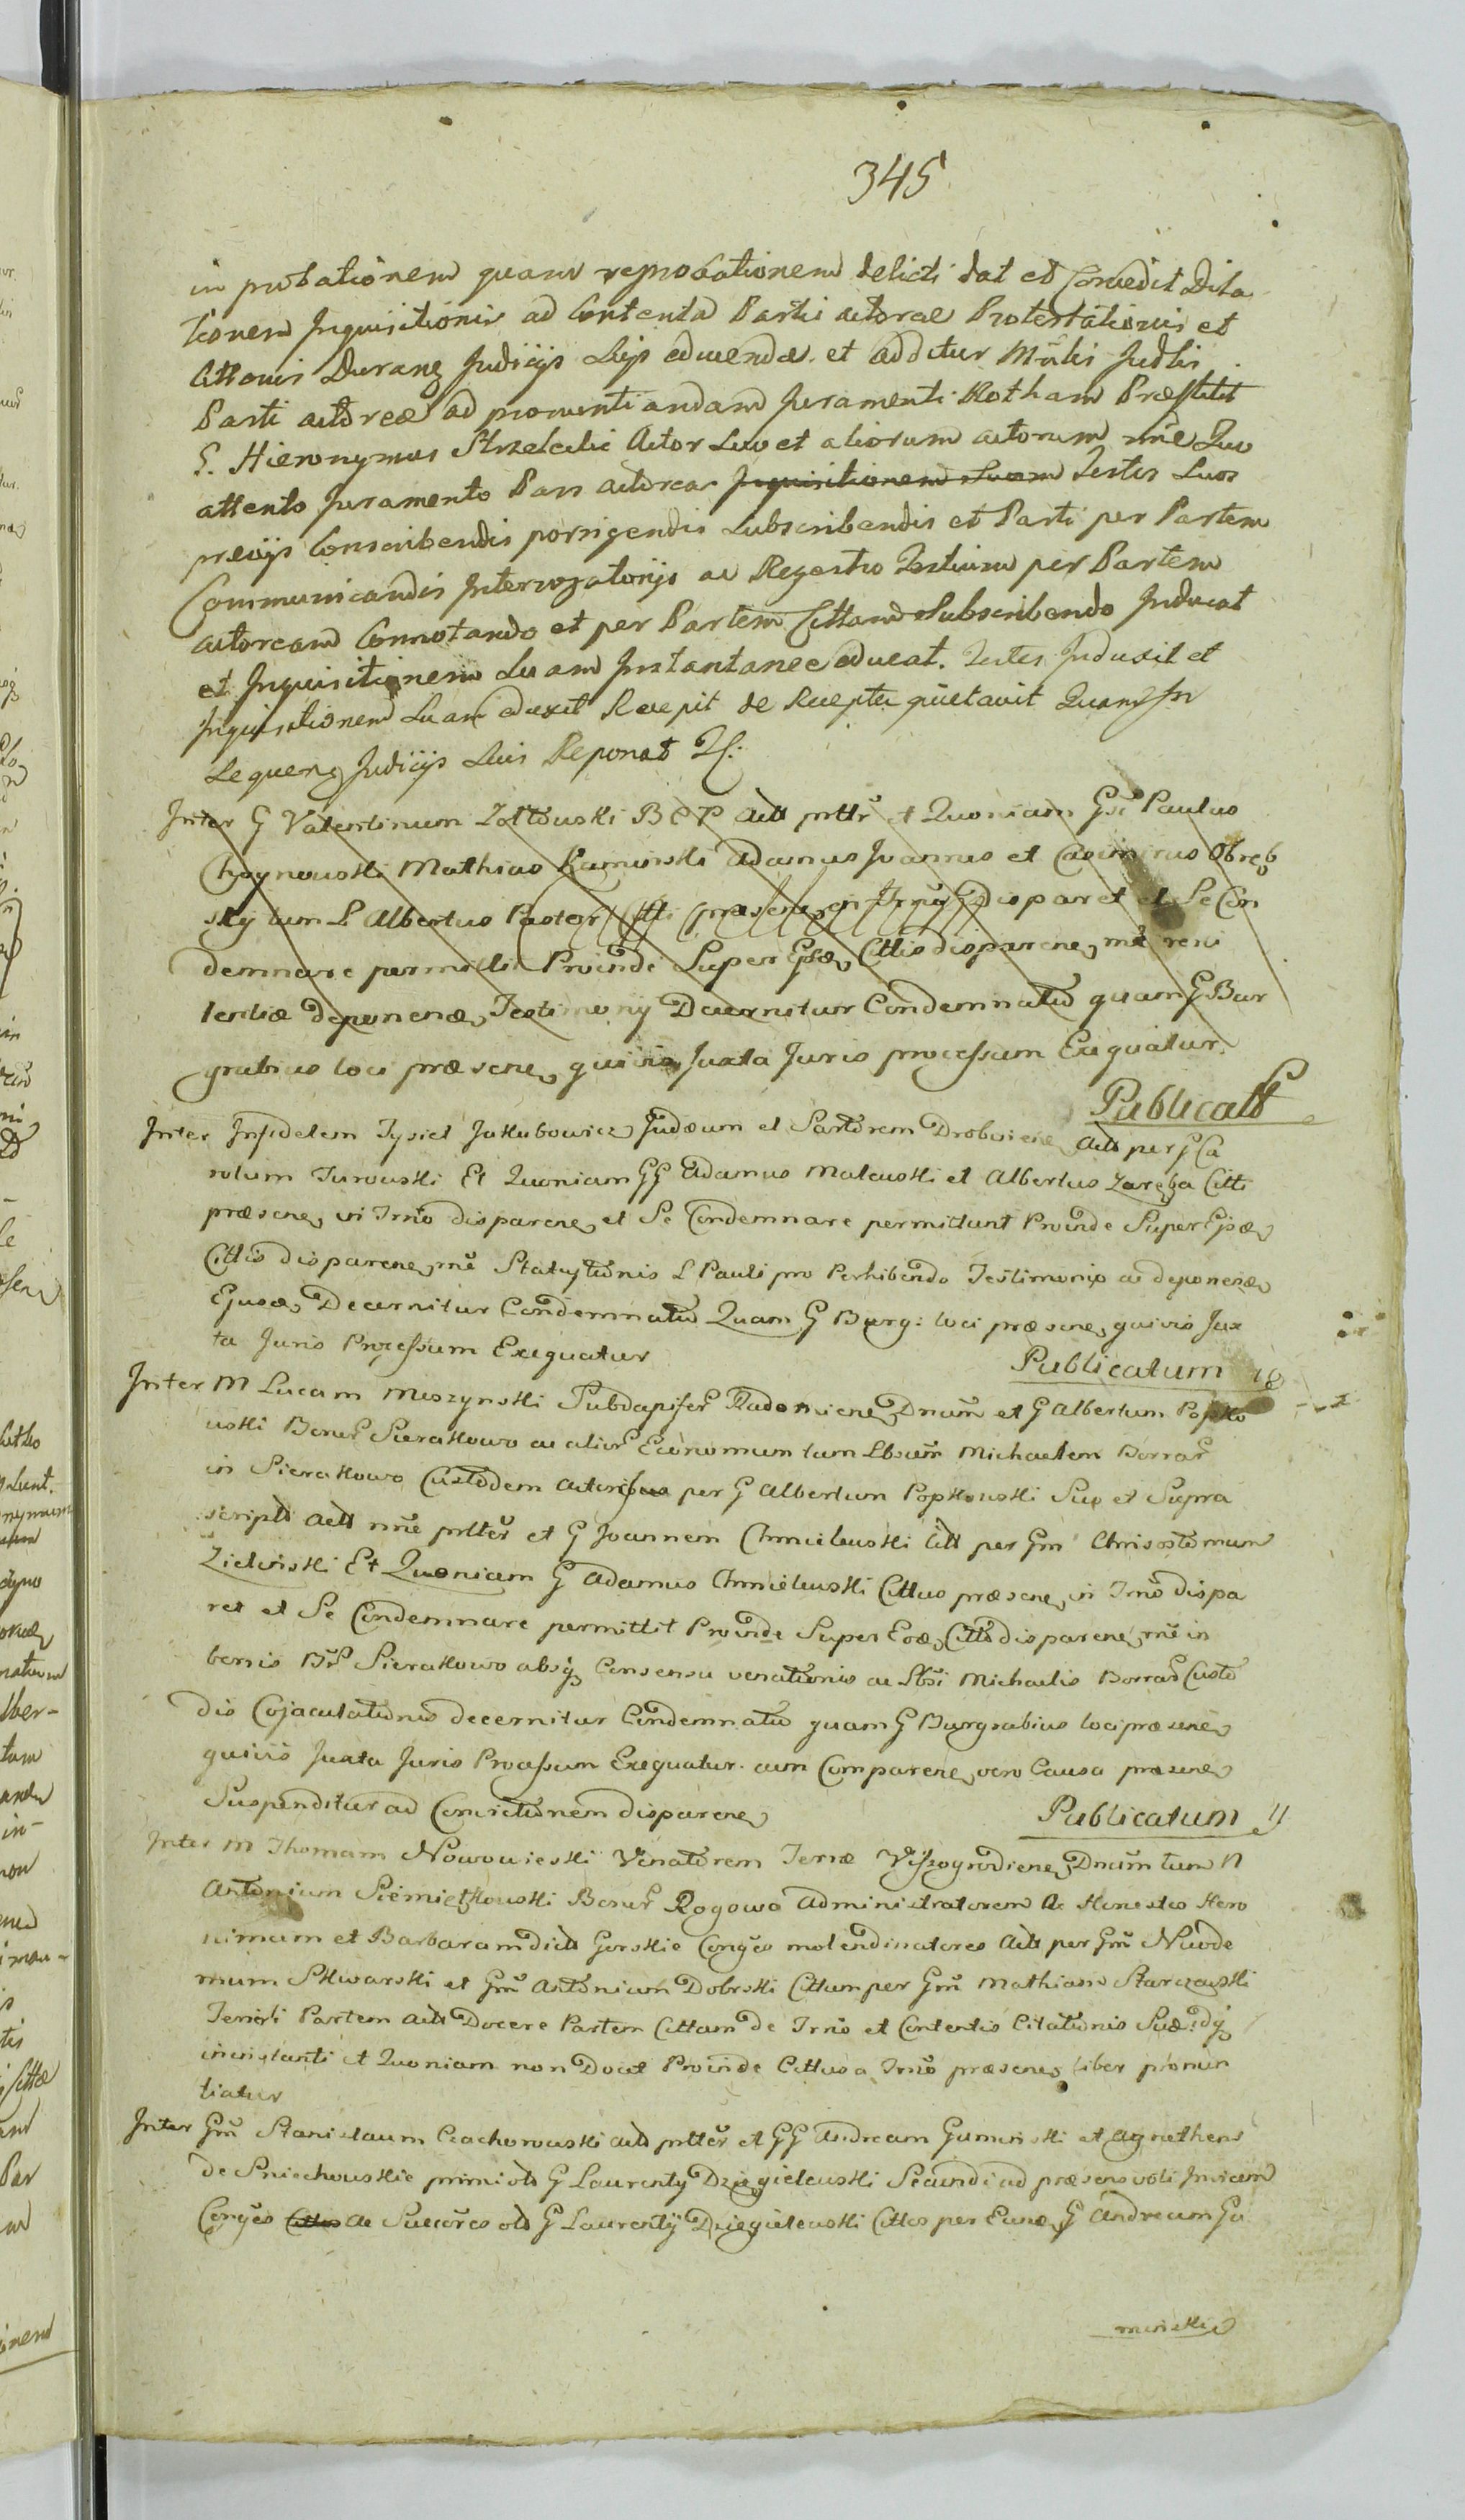 345
in probationem quam reprobationem delicti dat et Concedit Dila
tionem Inquisitionis ad Contenta Parti actoreae Protestationis et
Cittonis Durang Judicijs Suis educendae et additur Mnlis Judlis
Parti actoreae ad pronuntiandam Juramenti Rotham Praestitit
G. Hieronymus Strzelecki Actor Suo et aliorum actorum nne Quo
attento Juramento Pars actorea Inquisitionem Suam Testes Suos
previjs Conscribendis porrigendis Subscribendis et Parti per Partem
Communicandis Interrogatorijs ac Regestro Testium per Partem
actoream Connotando et per Partem Cittam Subscribendo Inducat
et Inquisitionem Suam Instantanee educat. Testes Induxit et
Inquisitionem Suam eduxit Recepit de Recepta quietavit Quam In
sequeng Judicijs Suis Reponat
Inter G Valentinum Zołtowski B C P Actt prttr et Quoniam Gsi Paulus
Choynowski Mathias Kaminski Adamus Joannes et Casimirus Obręb
sky tum L Albertus Pastor Citti praesens in Trno disparet et Se Con
demnare permittit Proinde Super Ejsdae Cittis disparene, nne reni
tentiae deponenae, Testimony Decernitur Condemnatio quam G Bur
grabius loci praesene, quivis Juxta Juris processum Exequatur.
Publicatt
Inter Infidelem Jysiel Jakubowicz Judaeum et Sartorem Drobinene Actt per G Ca
rolum Turowski Et Quoniam GG Adamus Malewski et Albertus Zaręba Citti
praesene, in Trno disparene, et Se Condemnare permittunt Proinde Super Ejsdae,
Cittis disparene, nne Statujtionis L Pauli pro Perhibendo Testimonio ac deponenae,
Ejusdae, Decernitur Condemnatio Quam G Burg: loci praesene, quivis Jux
ta Juris Processum Exequatur
Publicatum 18
Inter M Lucam Moszynski Subdapiferr Radomiene, Dnum et G Albertum Popko
wski Bonerr Sierakowo ac aliorr Economum tum Lbsum Michaelem Borrar
in Sierakowo Custodem Actoribus per G Albertum Popkowski Suo et Supra
scriptt Actt nne prtter et G Joannem Chmielewski Citt per Gm Chrisostomum
Zielinski Et Quoniam G Adamus Chmielewski Cittus praesene, in Trno dispa
ret et Se Condemnare permittit Proinde Super Eodae, Citto disparene, nne in
bonis Brr Sierakowo absq Consensu venationis ac Lbsi Michaelis Borrar Custo
dis Cojaculationis decernitur Condemnatio quam G Burgrabius loci praesene,
quivis Juxta Juris Processum Exequatur. cum Comparene, vero Causa praesene,
Suspenditur ad Convictionem disparene,
Publicatum 11
Inter M Thomam Nowowieski Venatorem Terrae Wiszogrodiene, Dnum tum N
Antonium Siemiątkowski Bonerr Rogowo Administratorem Ac Honestos Hero
nimum et Barbaram dictt Gorskie Conges molendinatores Actt per Gm Nicode
mum Skwarski et Gm Antonium Dobrski Cittum per Gm Mathiam Starczewski
Teneri Partem Actt Docere Partem Cittam de Trno et Contentis Citationis Suae: idq
in instanti et Quoniam non Docet Proinde Cittus a Trno praesene, liber pronun
tiatur
Inter Gm Stanislaum Czachorowski Actt prtter et GG Andream Guminski et Agnethem
de Sniechowskie primi olt G Laurenty Dzięgielewski Secundi ad praesens voti Invicem
Conges Cittos ac Succores olt G Laurentij Dzięgielewski Cittos per Eunde G Andream Gu
minski